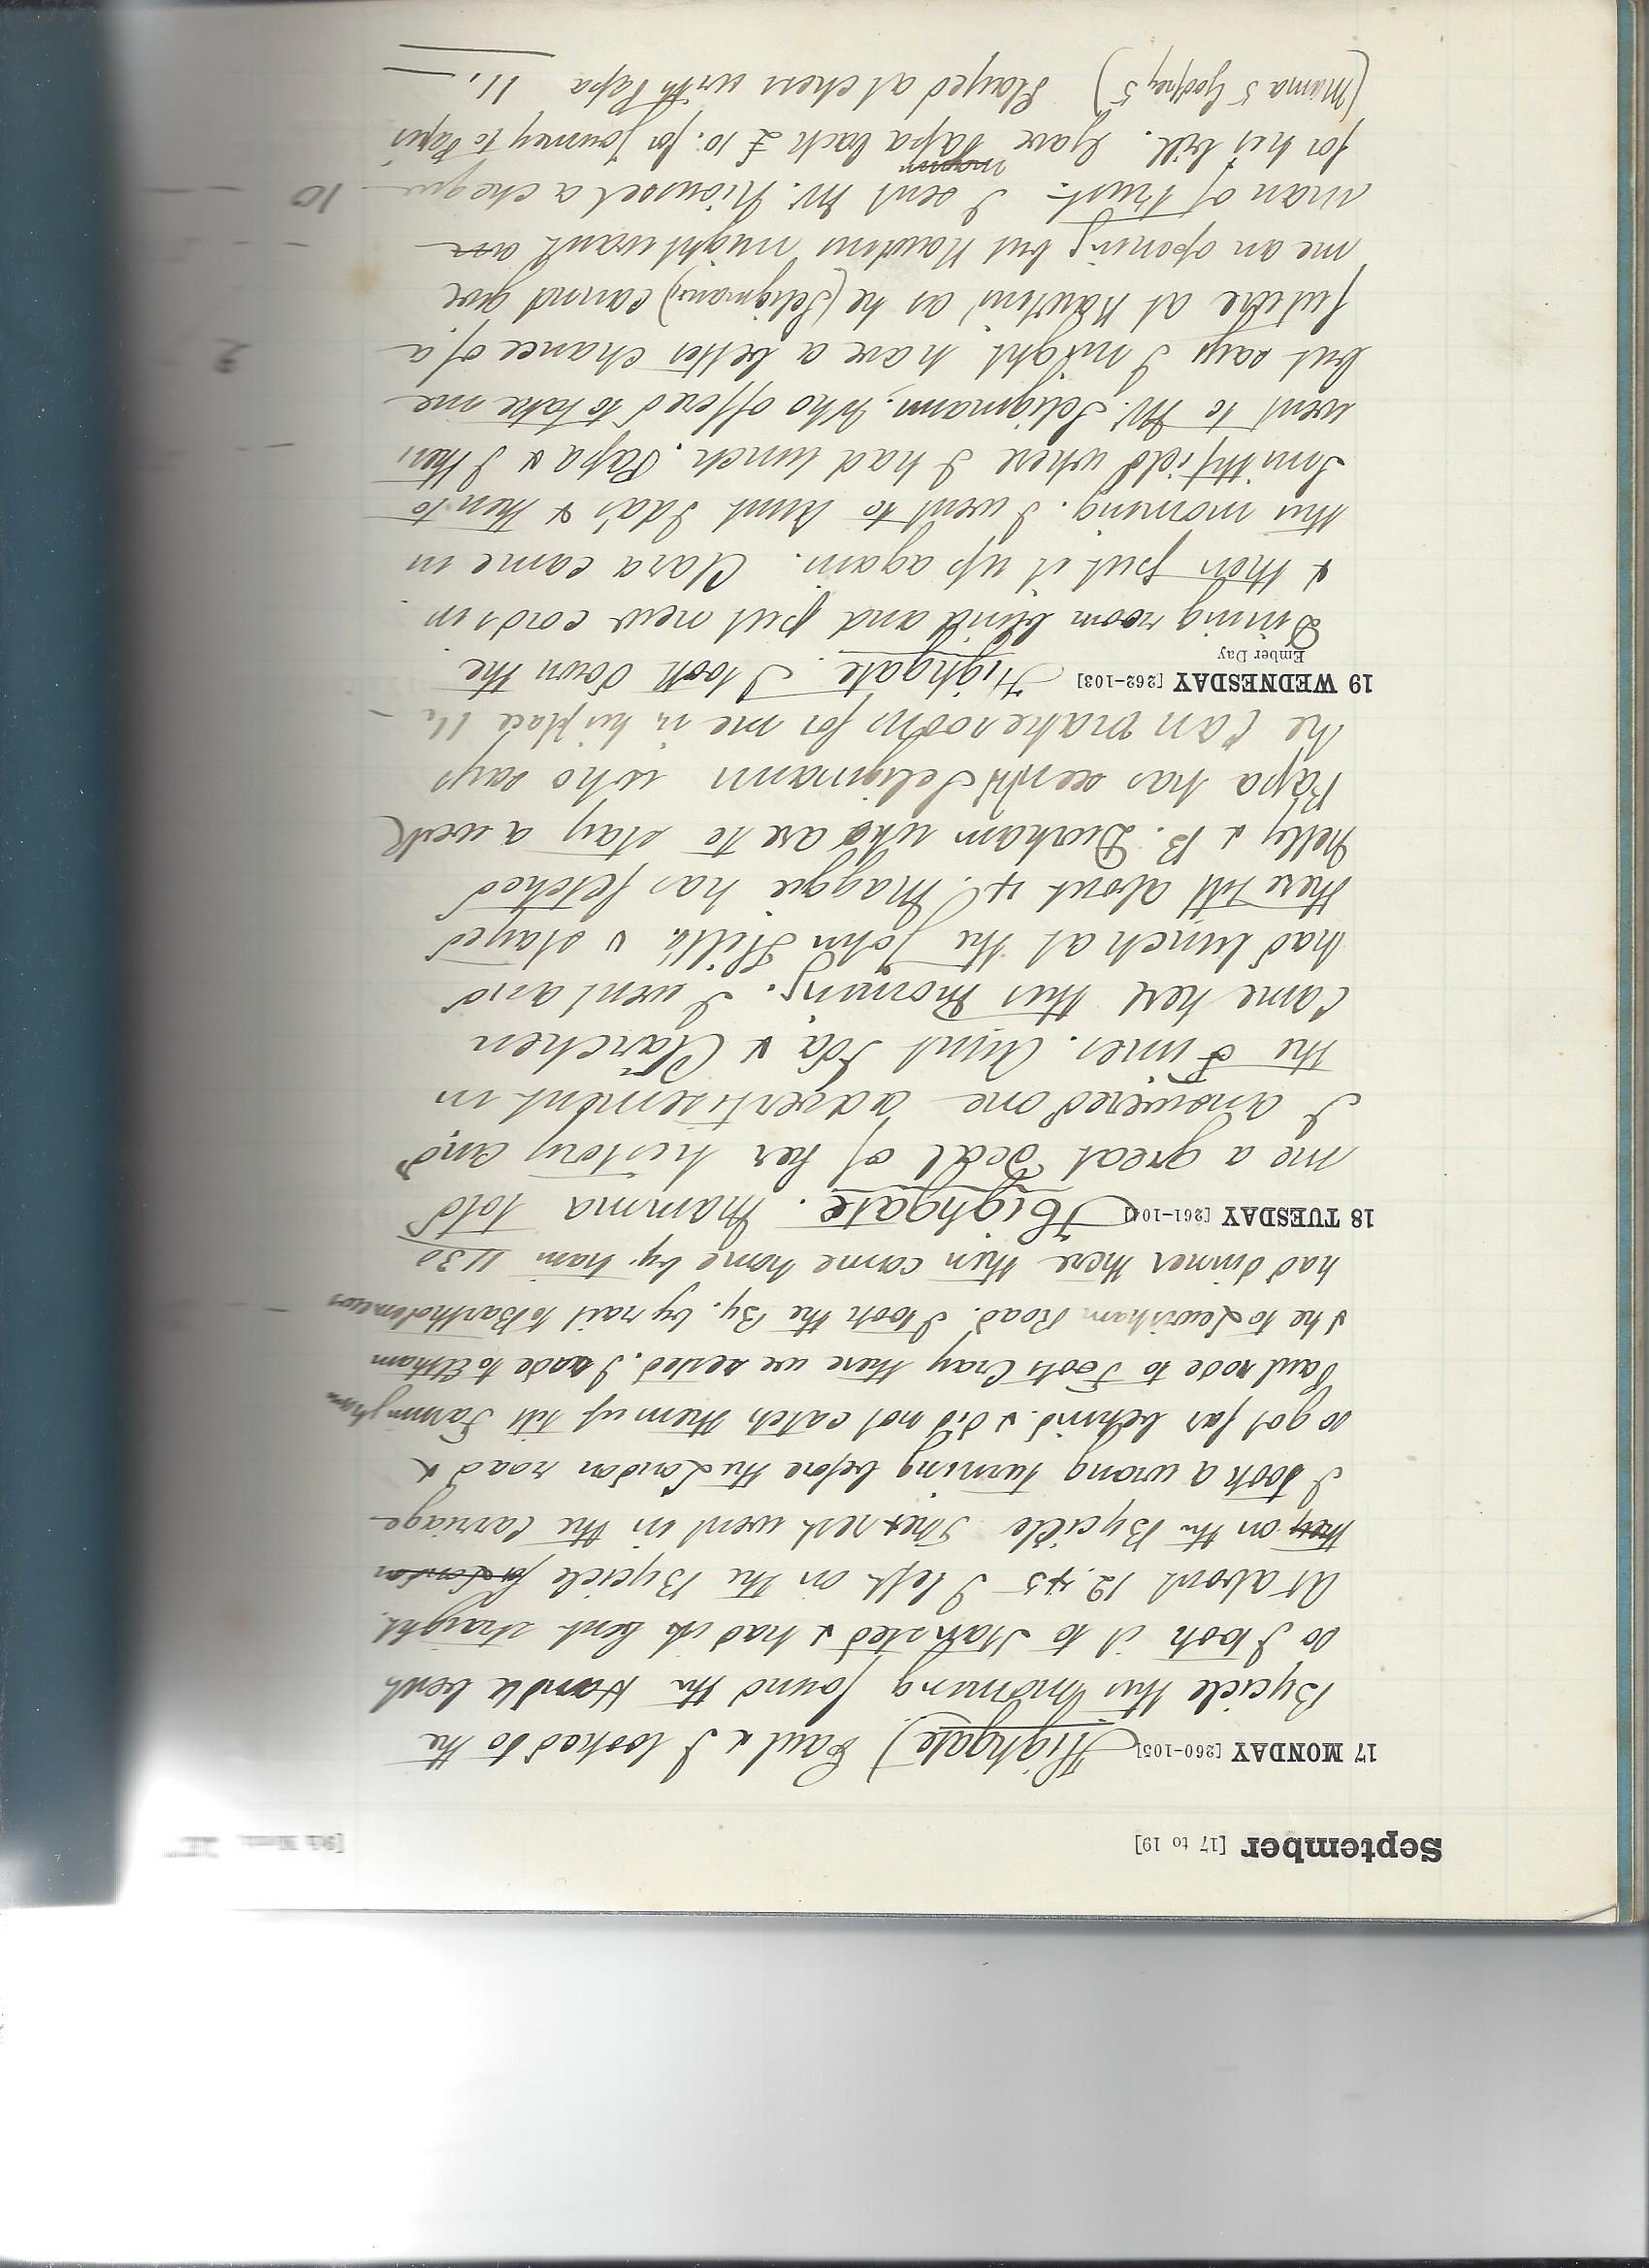 September [17 to 19] [9th Month
17 MONDAY [260-105] Highgate) Paul & I looked to the
Bycicle this morning found the Handle bent
so I took it to Stansted & had it bent straight.
At about 12.45 I left on the Bycicle for London
they on the Bycicle The rest went in the Carriage
I took a wrong turning before the London road &
so got far behind. & did not catch them up till Farningham
Paul rode to Foots Cray there we rested. I rode to Eltham
& he to Lewisham Road. I took the By. by rail to Bartholomews
had dinner there then came home by train 11.30
18 TUESDAY [261-104] Highgate. Mamma told
me a great deal of her history and
I answered one advertisement in
the Times. Aunt Ida & Clärchen
came here this morning. I went and
had lunch at the John Hill's & stayed
there till about 4. Maggie has fetched
Nelly & B. Durham who are to stay a week
Papa has seen Seligmann who says
he can make room for me in his place 11.
19 WEDNESDAY [262-103] Highgate. I took down the
Ember Day
Dining room blind and put new cords in
& then put it up again. Clara came in
this morning. I went to Aunt Ida's & then to
Smithfield where I had lunch. Papa & I then
went to Mr. Seligmann, who offered to take me
but says I might have a better chance of a
future at as he (Seligmann) cannot give
me an opening but might want a
man of trust. I sent Mr. a cheque 10
for his bill. Gave Papa back £10. for journey to Paris
(Mama 5 Godfrey 5) Played at chess with Papa 11.